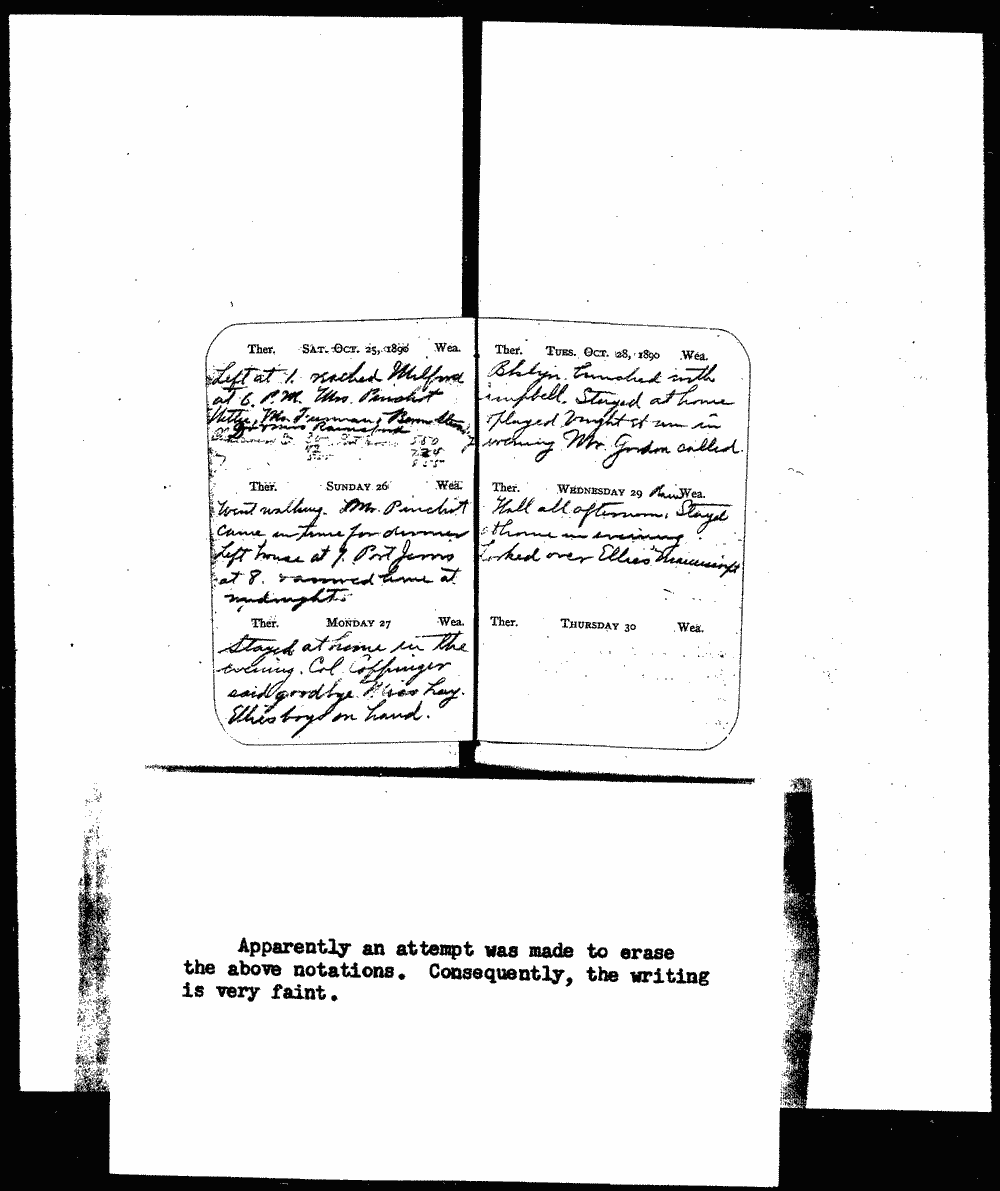 Ther. SAT. OCT. 25, 1890 Wea.
Left at 1. reached Milford
at 6. P.M. Mrs. Pinchot
Mr.
550
SUNDAY 26
Ther. Wea.
Went walking. Mr. Pinchot
came in time for dinner
Left house at 7. Port Jervis
at 8. home at
midnight.
Ther. MONDAY 27 Wea.
Stayed at home in the
evening. Col. Coppinger
said goodbye. Miss Hay.
Ellies boys on hand.
Ther. TUES. OCT. 28, 1890 Wea.
Bklyn. Lunched with
Stayed at home
played in
evening Mr. Gordon called.
Ther. WEDNESDAY 29 Rain Wea.
Hall all afternoon. Stayed
at home in evening.
Looked over Ellies Manuscript
Ther. THURSDAY 30 Wea.
Apparently an attempt was made to erase
the above notations. Consequently, the writing
is very faint.